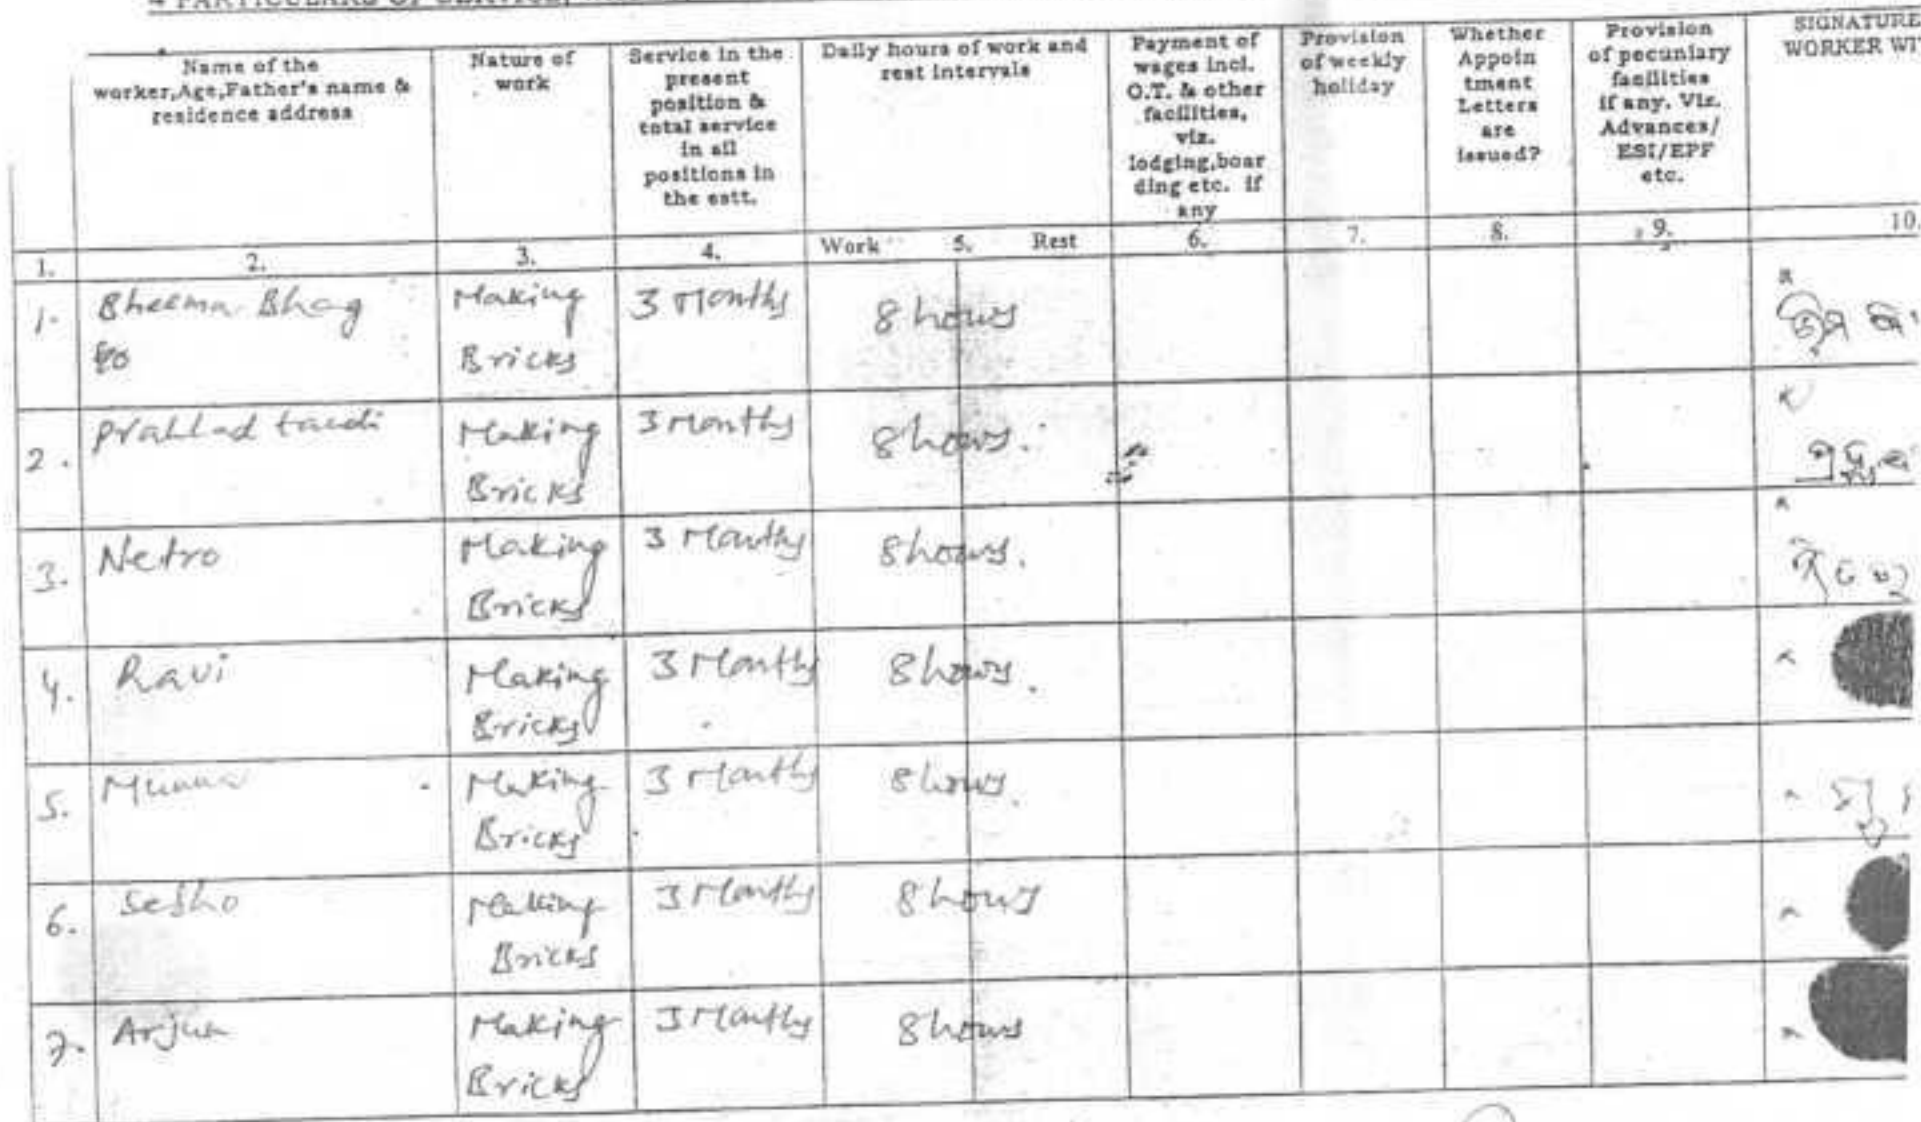 4 PARTICULARS OF SERVICE,
Name of the
worker,Age,Father's name &
residence address
Nature of
work
Service in the
present
position &
total service
in all
positions in
the estt.
Daily hours of work and
rest intervals
Payment of
wages incl.
O.T. & other
facilities,
viz.
lodging,boar
ding etc. if
any
Provision
of weekly
holiday
Whether
Appoin
tment
Letters
are
issued?
Provision
of pecuniary
facilities
if any. Viz.
Advances/
ESI/EPF
etc.
SIGNATURE
WORKER WIT
1. 2. 3. 4. Work 5. Rest 6. 7. 8. 9. 10.
1. Bheema Bhag Making 3 Months 8 hours
Bricks
2. Prahlad tandi Making 3 Months 8 hours.
Bricks
3. Netro Making 3 Months 8 hours.
Bricks
4. Ravi Making 3 Months 8 hours.
Bricks
5. Munna Making 3 Months 8 hours.
Bricks
6. Sesho Making 3 Months 8 hours
Bricks
7. Arjun Making 3 Months 8 hours
Bricks